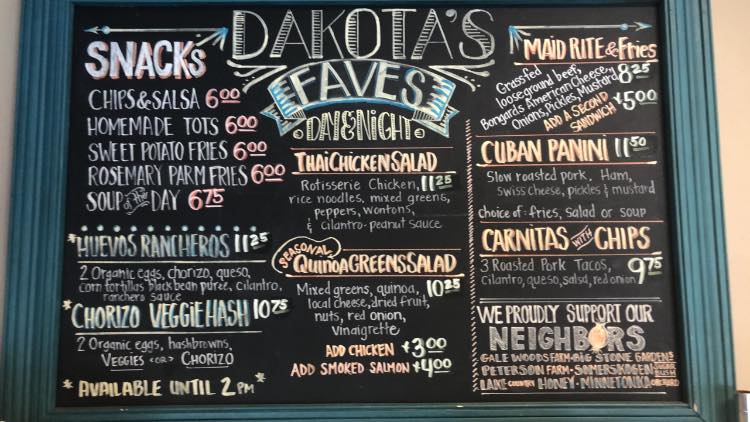 DAKOTA'S
FAVES
DAY & NIGHT
SNACKS
CHIPS & SALSA 6.00
HOMEMADE TOTS 6.00
SWEET POTATO FRIES 6.00
ROSEMARY PARM FRIES 6.00
SOUP of the DAY 6.75
*HUEVOS RANCHEROS 11.25
2 Organic eggs, chorizo, queso,
corn tortillas, black bean puree, cilantro,
ranchero sauce
*CHORIZO VEGGIE HASH 10.75
2 Organic eggs, hashbrowns,
VEGGIES <OR> CHORIZO
*AVAILABLE UNTIL 2 PM*
THAI CHICKEN SALAD
Rotisserie Chicken, 11.25
rice noodles, mixed greens,
peppers, wontons,
& cilantro-peanut sauce
SEASONAL
QUINOA GREENS SALAD
Mixed greens, quinoa, 10.25
local cheese, dried fruit,
nuts, red onion,
Vinaigrette
ADD CHICKEN +3.00
ADD SMOKED SALMON +4.00
MAID RITE & Fries
Grassfed 8.25
loose ground beef,
Bongards American Cheese,
Onions, Pickles, Mustard
ADD A SECOND +5.00
SANDWICH
CUBAN PANINI 11.50
Slow roasted pork, Ham,
Swiss Cheese, pickles & mustard
choice of: fries, salad or soup
CARNITAS WITH CHIPS
3 Roasted Pork Tacos, 9.75
Cilantro, queso, salsa, red onion
WE PROUDLY SUPPORT OUR
NEIGHBORS
GALE WOODS FARM • BIG STONE GARDENS
PETERSON FARM • SOMERSKOGEN SUGAR BUSH
LAKE COUNTRY HONEY • MINNETONKA ORCHARD